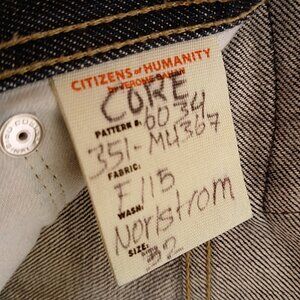 CITIZENS of HUMANITY
by JEROME DAHAN
CORE
PATTERN #: 6034
351-MU367
FABRIC:
F115
WASH:
Norstrom
SIZE:
32